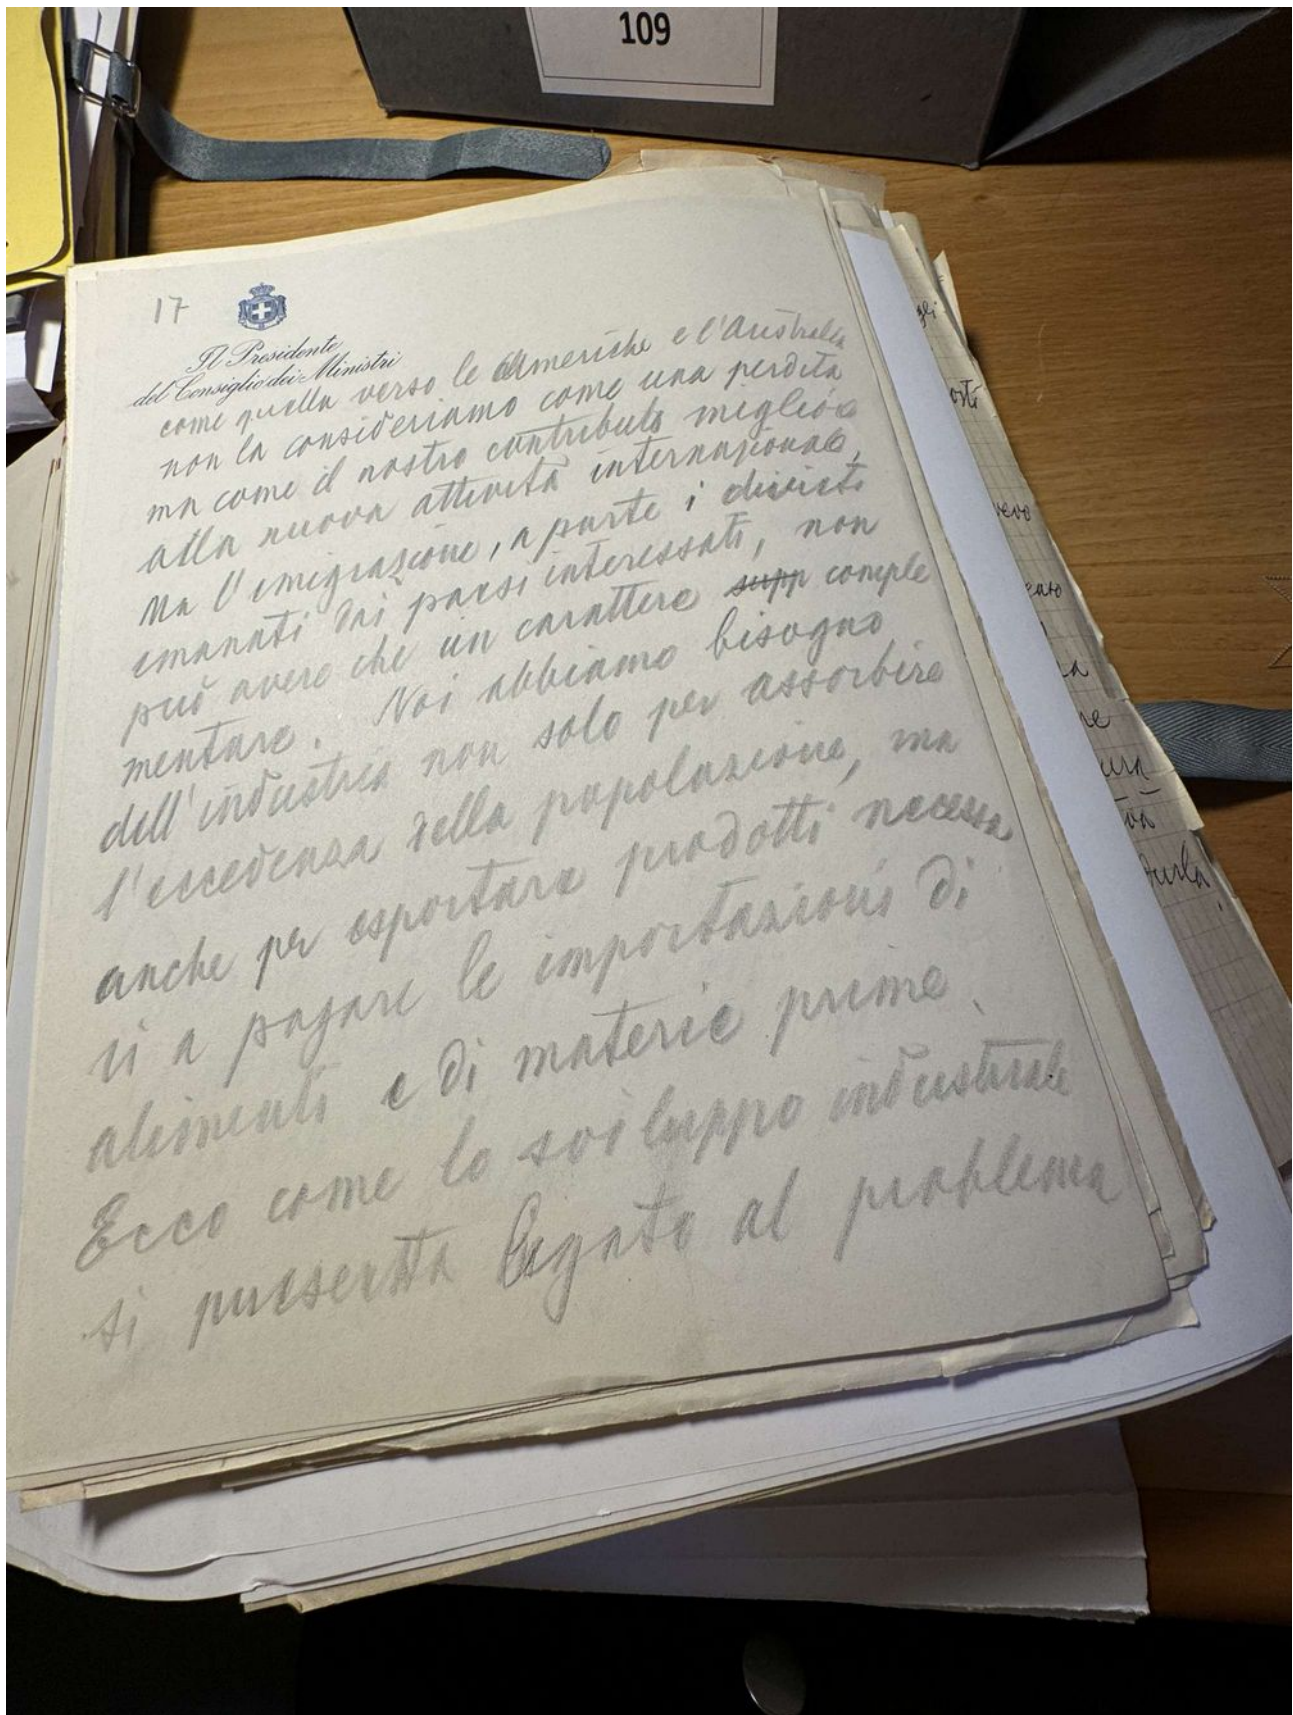 109
17
Il Presidente
del Consiglio dei Ministri
come quella verso le Americhe e l'Australia
non la consideriamo come una perdita
ma come il nostro contributo migliore
alla nuova attività internazionale,
Ma l'emigrazione, a parte i divieti
emanati dai paesi interessati, non
può avere che un carattere supp comple
mentare. Noi abbiamo bisogno
dell'industria non solo per assorbire
l'eccedenza della popolazione, ma
anche per esportare prodotti necessa
ri a pagare le importazioni di
alimenti e di materie prime.
Ecco come lo sviluppo industriale
si presenta legato al problema
osti